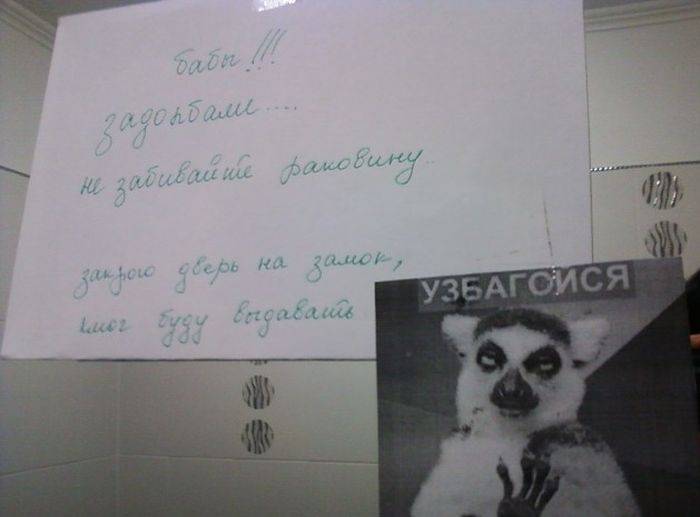 бабы!!!
задолбали....
не забивайте раковину..
закрою дверь на замок,
ключ буду выдавать
УЗБАГОЙСЯ